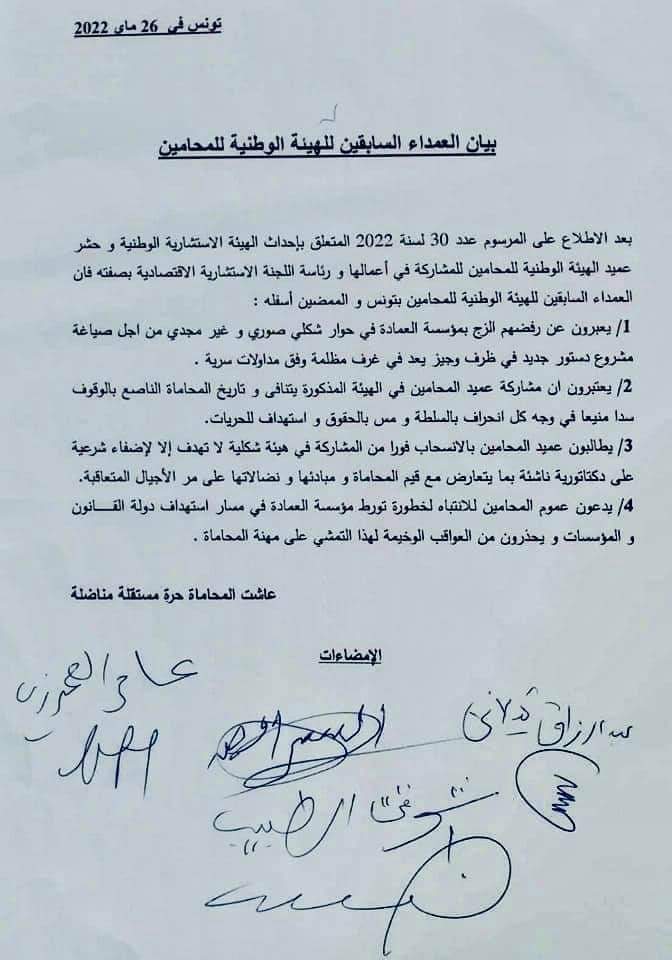 تونس في 26 ماي 2022
بيان العمداء السابقين للهيئة الوطنية للمحامين
بعد الاطلاع على المرسوم عدد 30 لسنة 2022 المتعلق بإحداث الهيئة الاستشارية الوطنية و حشر
عميد الهيئة الوطنية للمحامين للمشاركة في أعمالها و رئاسة اللجنة الاستشارية الاقتصادية بصفته فان
العمداء السابقين للهيئة الوطنية للمحامين بتونس و الممضين أسفله :
1/ يعبرون عن رفضهم الزج بمؤسسة العمادة في حوار شكلي صوري و غير مجدي من اجل صياغة
مشروع دستور جديد في ظرف وجيز يعد في غرف مظلمة وفق مداولات سرية .
2/ يعتبرون ان مشاركة عميد المحامين في الهيئة المذكورة يتنافى و تاريخ المحاماة الناصع بالوقوف
سدا منيعا في وجه كل انحراف بالسلطة و مس بالحقوق و استهداف للحريات.
3/ يطالبون عميد المحامين بالانسحاب فورا من المشاركة في هيئة شكلية لا تهدف إلا لإضفاء شرعية
على دكتاتورية ناشئة بما يتعارض مع قيم المحاماة و مبادئها و نضالاتها على مر الأجيال المتعاقبة.
4/ يدعون عموم المحامين للانتباه لخطورة تورط مؤسسة العمادة في مسار استهداف دولة القـــانون
و المؤسسات و يحذرون من العواقب الوخيمة لهذا التمشي على مهنة المحاماة .
عاشت المحاماة حرة مستقلة مناضلة
الإمضاءات
عبد الرزاق كيلاني
شوقي الطبيب